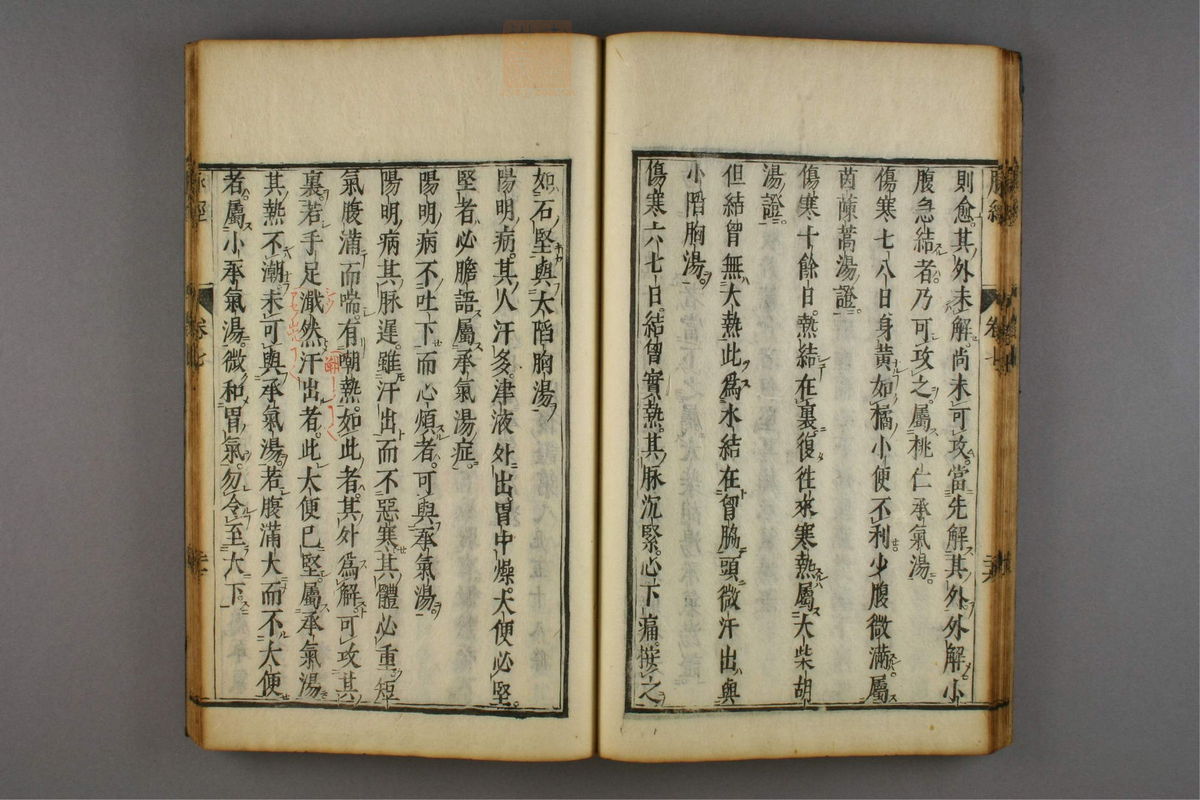 則愈其外未解尚未可攻當先解其外外解小
腹急結者乃可攻之屬桃仁承氣湯
傷寒七八日身黃如橘小便不利少腹微滿屬
茵蔯蒿湯證
傷寒十餘日熱結在裏復徃來寒熱屬大柴胡
湯證
但結胷無大熱此爲水結在胷脇頭微汗出與
小陷胸湯
傷寒六七日結胷實熱其脉沉緊心下痛按之
如石堅與大陷胸湯
陽明病其人汗多津液外出胃中燥大便必堅
堅者必膽語屬承氣湯症
陽明病不吐下而心煩者可與承氣湯
陽明病其脉遲雖汗出而不惡寒其體必重短
氣腹滿而喘有嘲熱如此者其外爲解可攻其
裏若手足濈然汗出者此大便已堅屬承氣湯
其熱不潮未可與承氣湯若腹滿大而不大便
者屬小承氣湯微和胃氣勿令至大下
脉經
卷七